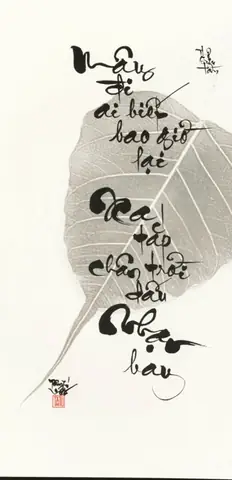 Mây
đi
ai biết
bao giờ
lại
Xa
tắp
chân trời
dấu
Nhạn
bay